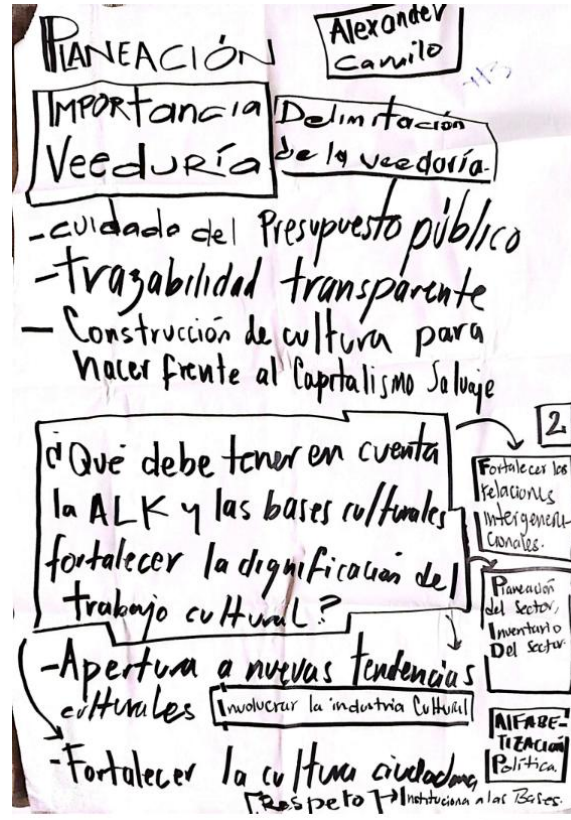 PLANEACIÓN
Alexander
Camilo
IMPORtancia
VeedURía
Delimitación
de la veedoría.
-cuidado del Presupuesto público
-trazabilidad transparente
- Construcción de cultura para
hacer frente al Capitalismo Salvaje
2
¿Qué debe tener en cuenta
la ALK y las bases culturales
fortalecer la dignificación del
trabajo cultural?
Fortalecer las
relaciones
intergenera-
cionales.
Planeación
del Sector,
Inventario
Del Sector.
-Apertura a nuevas tendencias
culturales
Involucrar la industria Cultural
AlFABE-
TIZACIÓN
Política.
-Fortalecer la cultura ciudadana,
Respeto
Instituciona a las Bases.